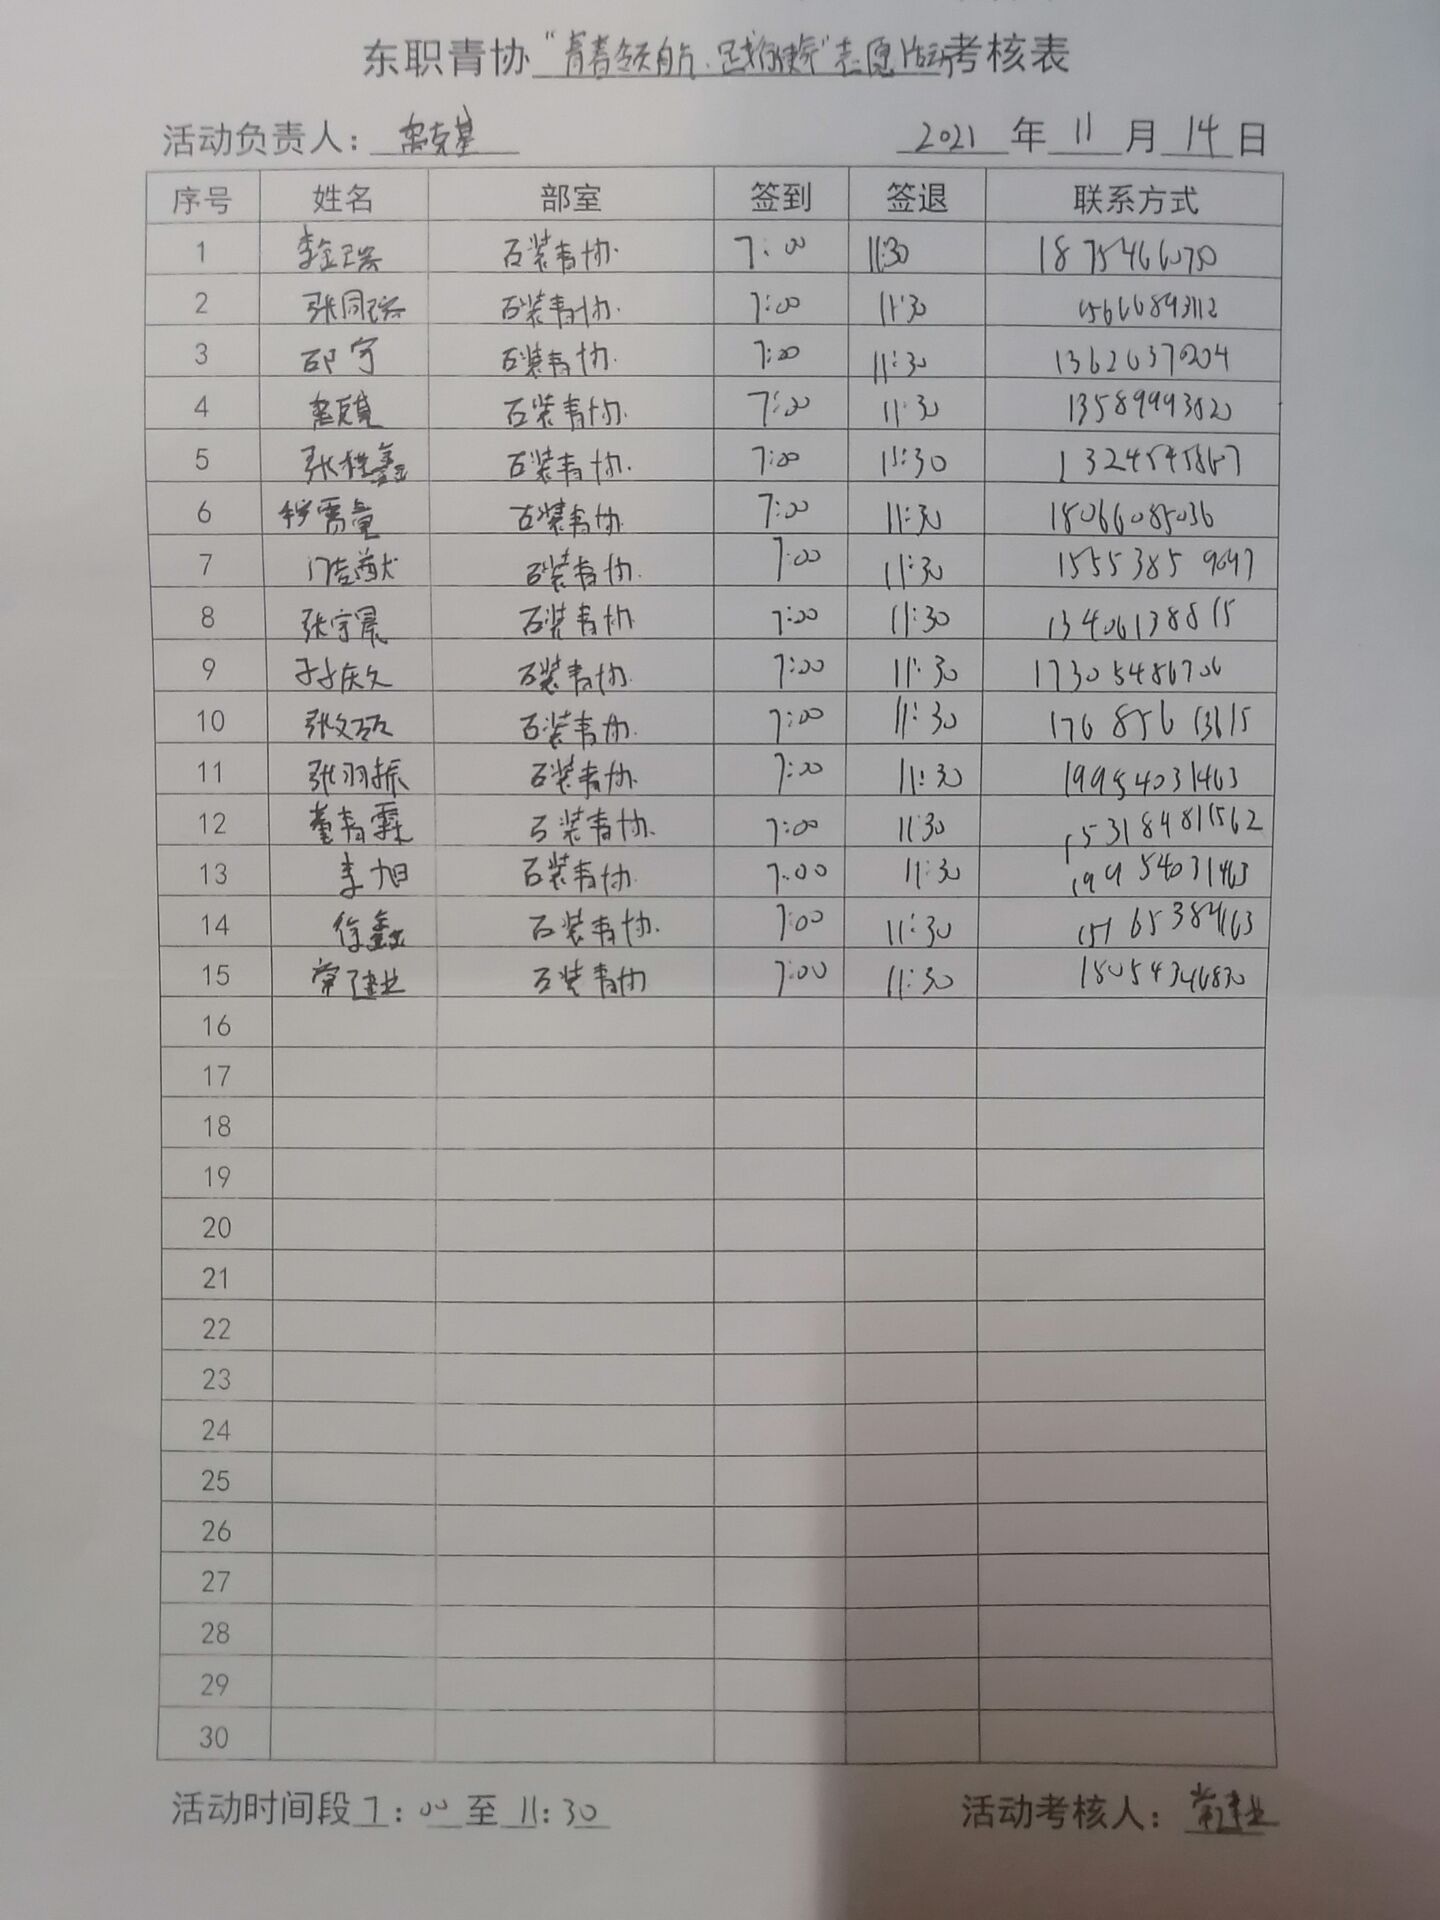 东职青协“青春领航·足够健康”志愿活动考核表
活动负责人： 2021年11月14日
序号 姓名 部室 签到 签退 联系方式
1 李金瑞 石装青协. 7:00 11:30 18754666750
2 张同瑞 石装青协. 7:00 11:30 15666893112
3 邵宁 石装青协. 7:00 11:30 13626379204
4 石装青协. 7:00 11:30 13589993820
5 张程鑫 石装青协. 7:00 11:30
6 石装青协. 7:00 11:30 18066085036
7 石装青协. 7:00 11:30
8 张宇晨 石装青协. 7:00 11:30 13406138815
9 孙庆久 石装青协. 7:00 11:30 17305486706
10 石装青协. 7:00 11:30 17685613615
11 张羽振 石装青协. 7:00 11:30 19954031463
12 董青霖 石装青协. 7:00 11:30
13 李旭 石装青协. 7:00 11:30 19954031463
14 徐鑫 石装青协. 7:00 11:30
15 常建业 石装青协 7:00 11:30 18054346830
16
17
18
19
20
21
22
23
24
25
26
27
28
29
30
活动时间段7:00至11:30 活动考核人：常建业